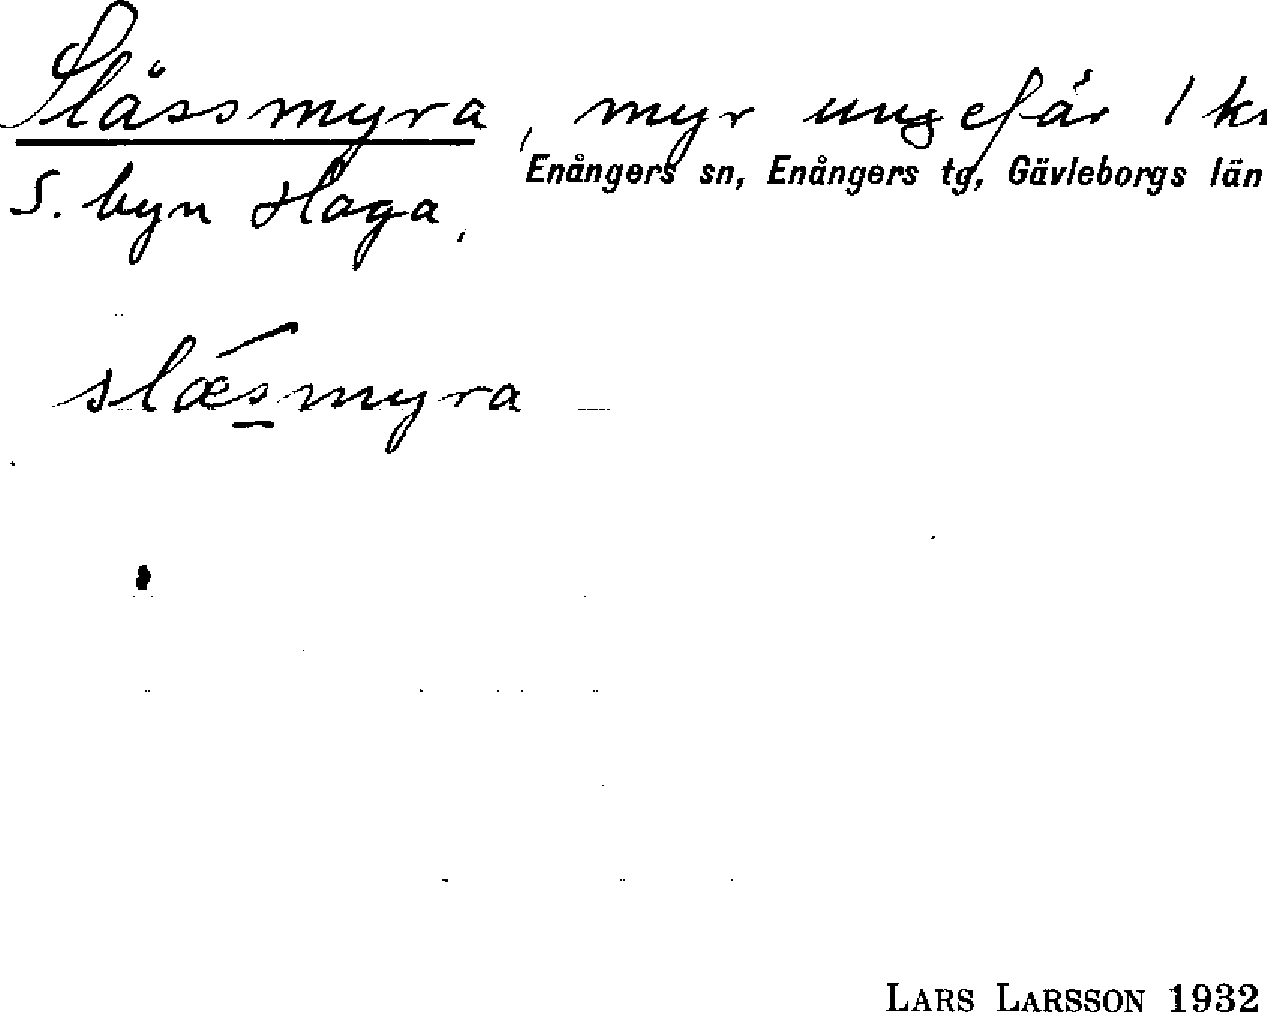 Slässmyra, myr ungefär 1 k
Enångers sn, Enångers tg, Gävleborgs län
S. byn Haga.
slæsmyra
LARS LARSSON 1932